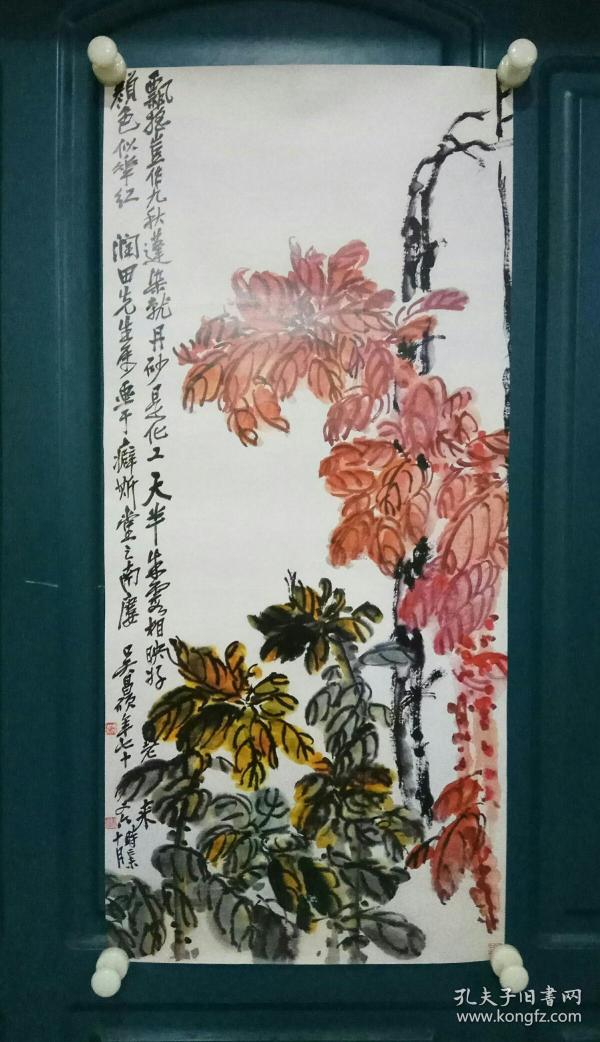 飄搖豈作九秋蓬染就丹砂是化工天半朱霞相映好老來
顏色似華紅 潤田先生屬畫于癖斯堂之南廔 吳昌碩年七十又六
十月
孔夫子旧書网
www.kongfz.com